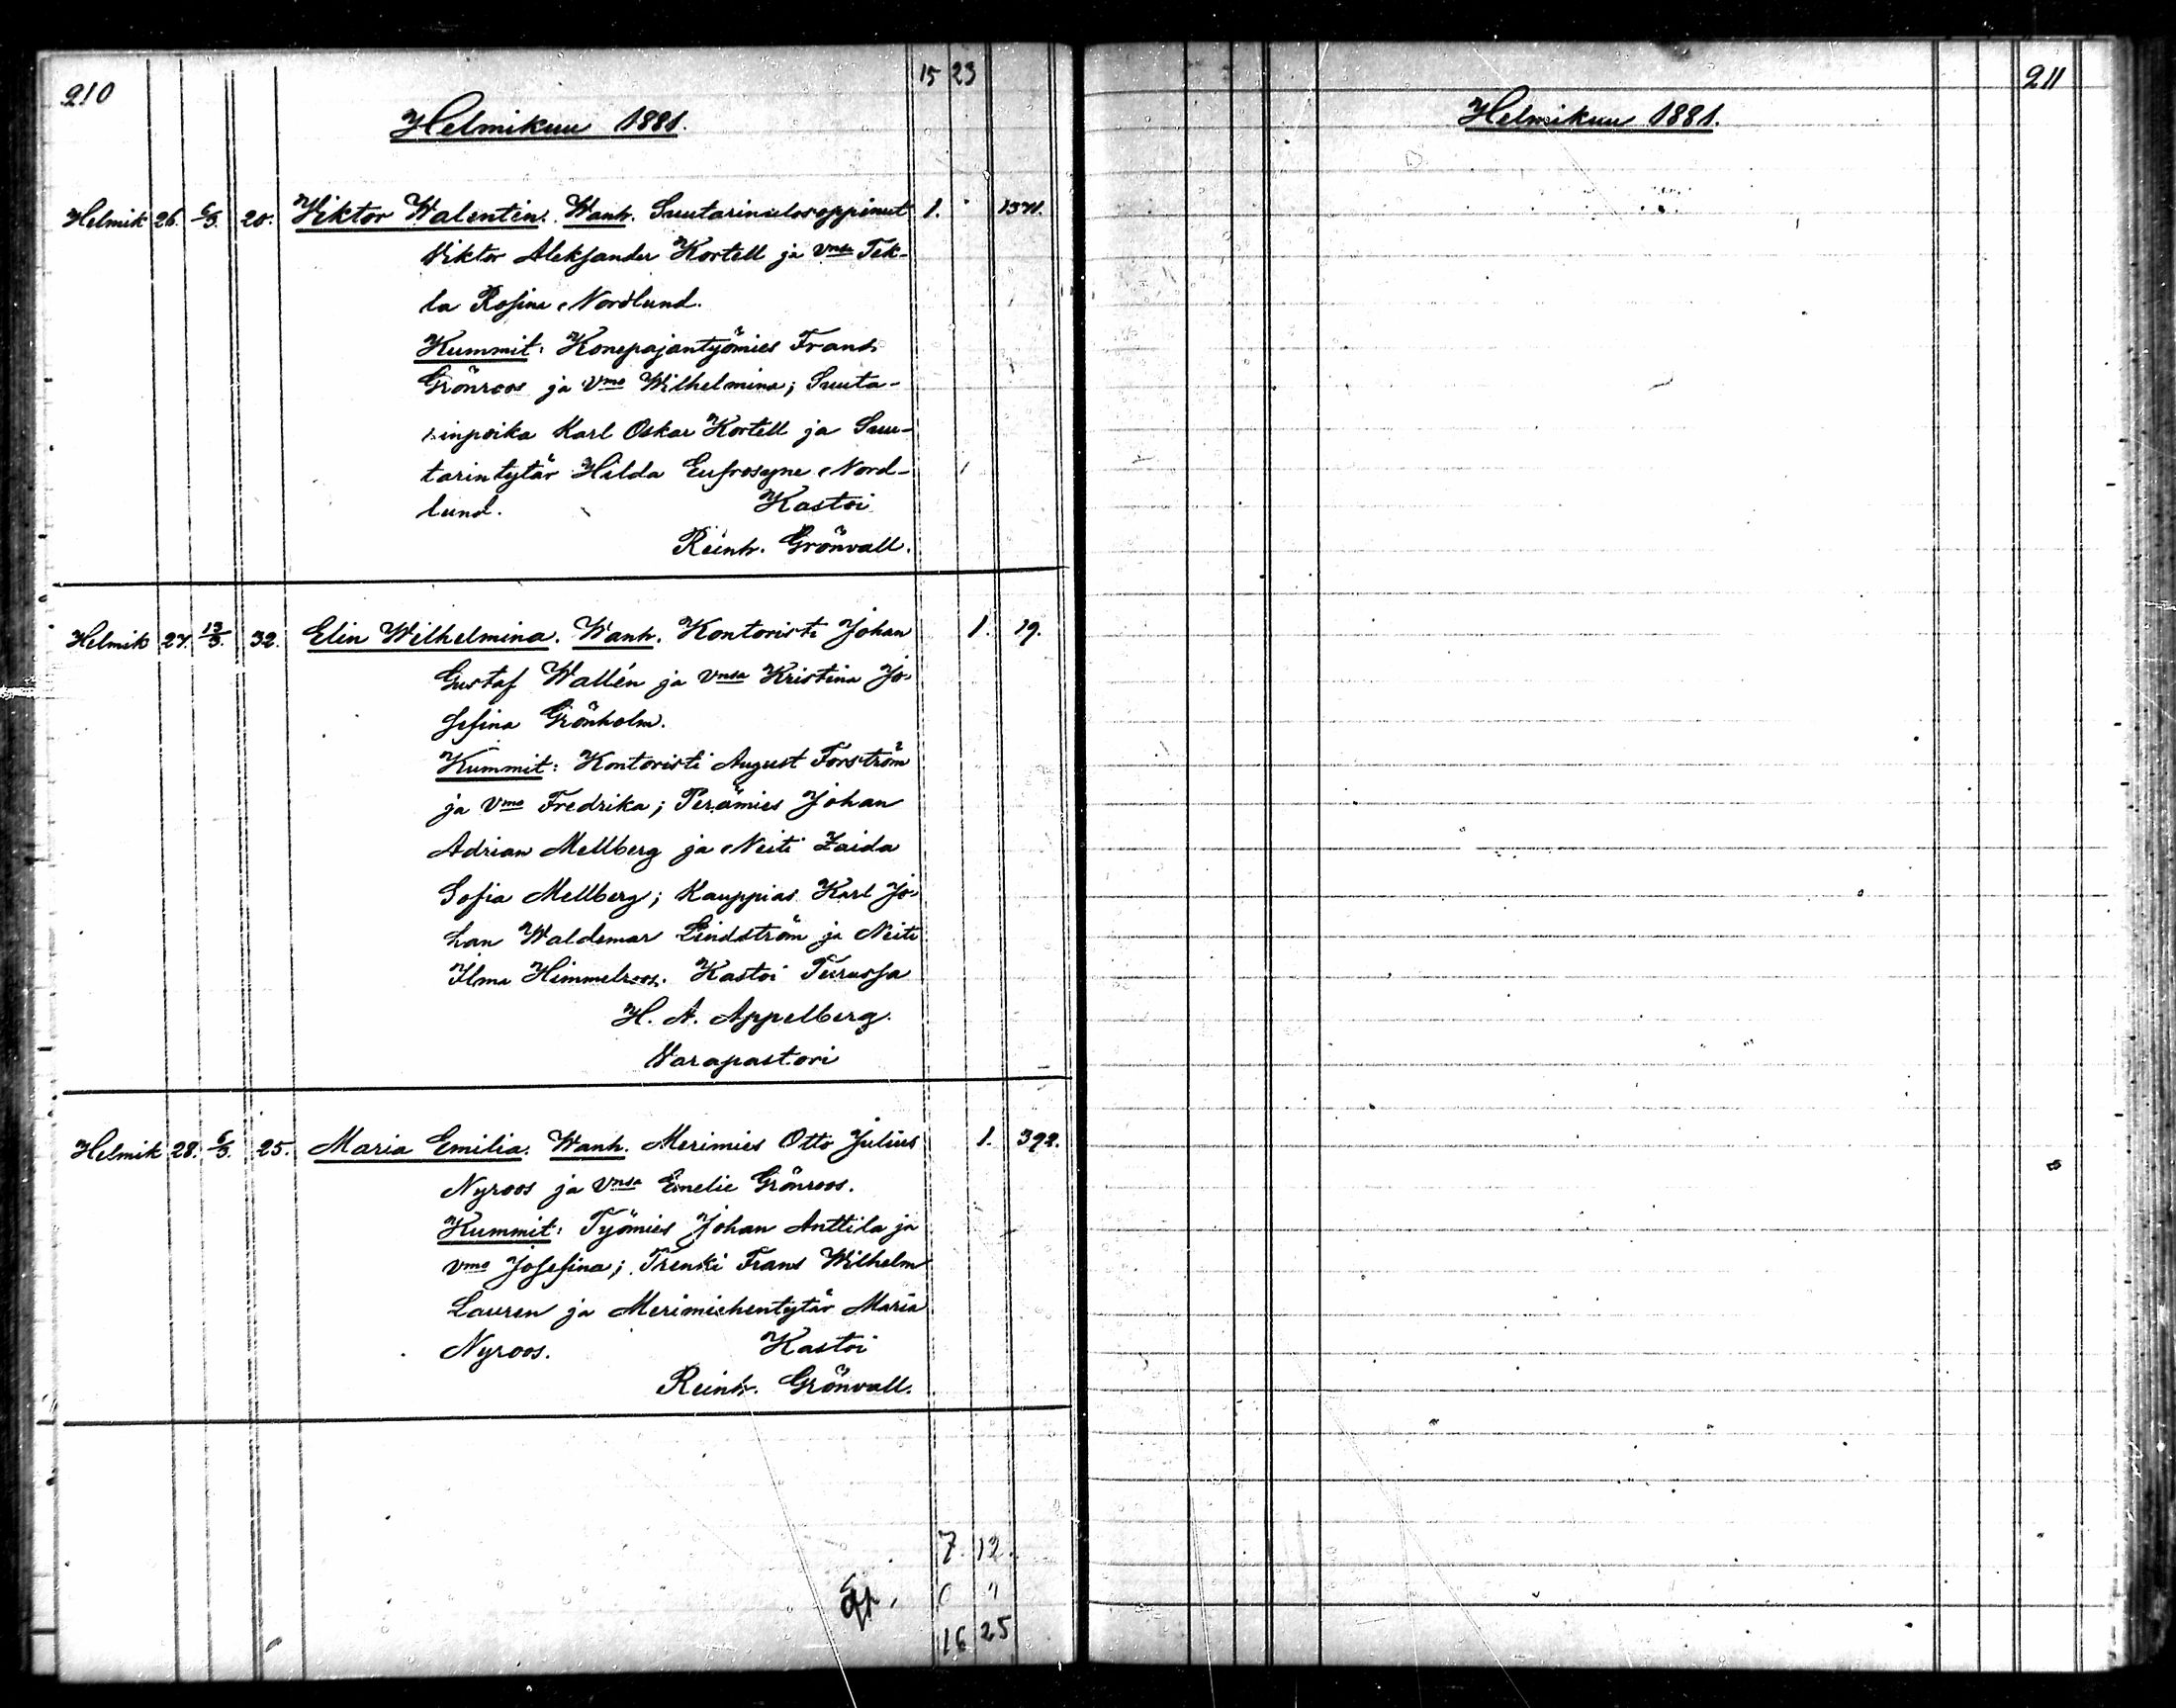 210
15 23
Helmikuu 1881.
Helmik 26. 6/3. 20. Viktor Walentin. Wanh. Suutarinulosoppinut 1. 1371.
Viktor Aleksander Kortell ja vnsa Tek-
la Rosina Nordlund.
Kummit: Konepajantyömies Frans
Grönroos ja vmo Wilhelmina; Suuta-
rinpoika Karl Oskar Kortell ja Suu-
tarintytär Hilda Eufrosyne Nord-
lund. Kastoi
Reinh. Grönvall.
Helmik 27. 13/3. 32. Elin Wilhelmina. Wanh. Kontoristi Johan 1. 19.
Gustaf Wallén ja vnsa Kristina Jo-
sefina Grönholm.
Kummit: Kontoristi August Forström
ja vmo Fredrika; Perämies Johan
Adrian Mellberg ja Neiti Zaida
Sofia Mellberg; Kauppias Karl Jo-
han Waldemar Lindström ja Neiti
Ilma Himmelroos. Kastoi Turussa
H. A. Appelberg.
Varapastori
Helmik 28. 6/3. 25. Maria Emilia. Wanh. Merimies Otto Julius 1. 392.
Nyroos ja vnsa Emelie Grönroos.
Kummit: Työmies Johan Anttila ja
vmo Josefina; Trenki Frans Wilhelm
Lauren ja Merimiehentytär Maria
Nyroos. Kastoi
Reinh. Grönvall.
7. 12.
16 25
211
Helmikuu 1881.